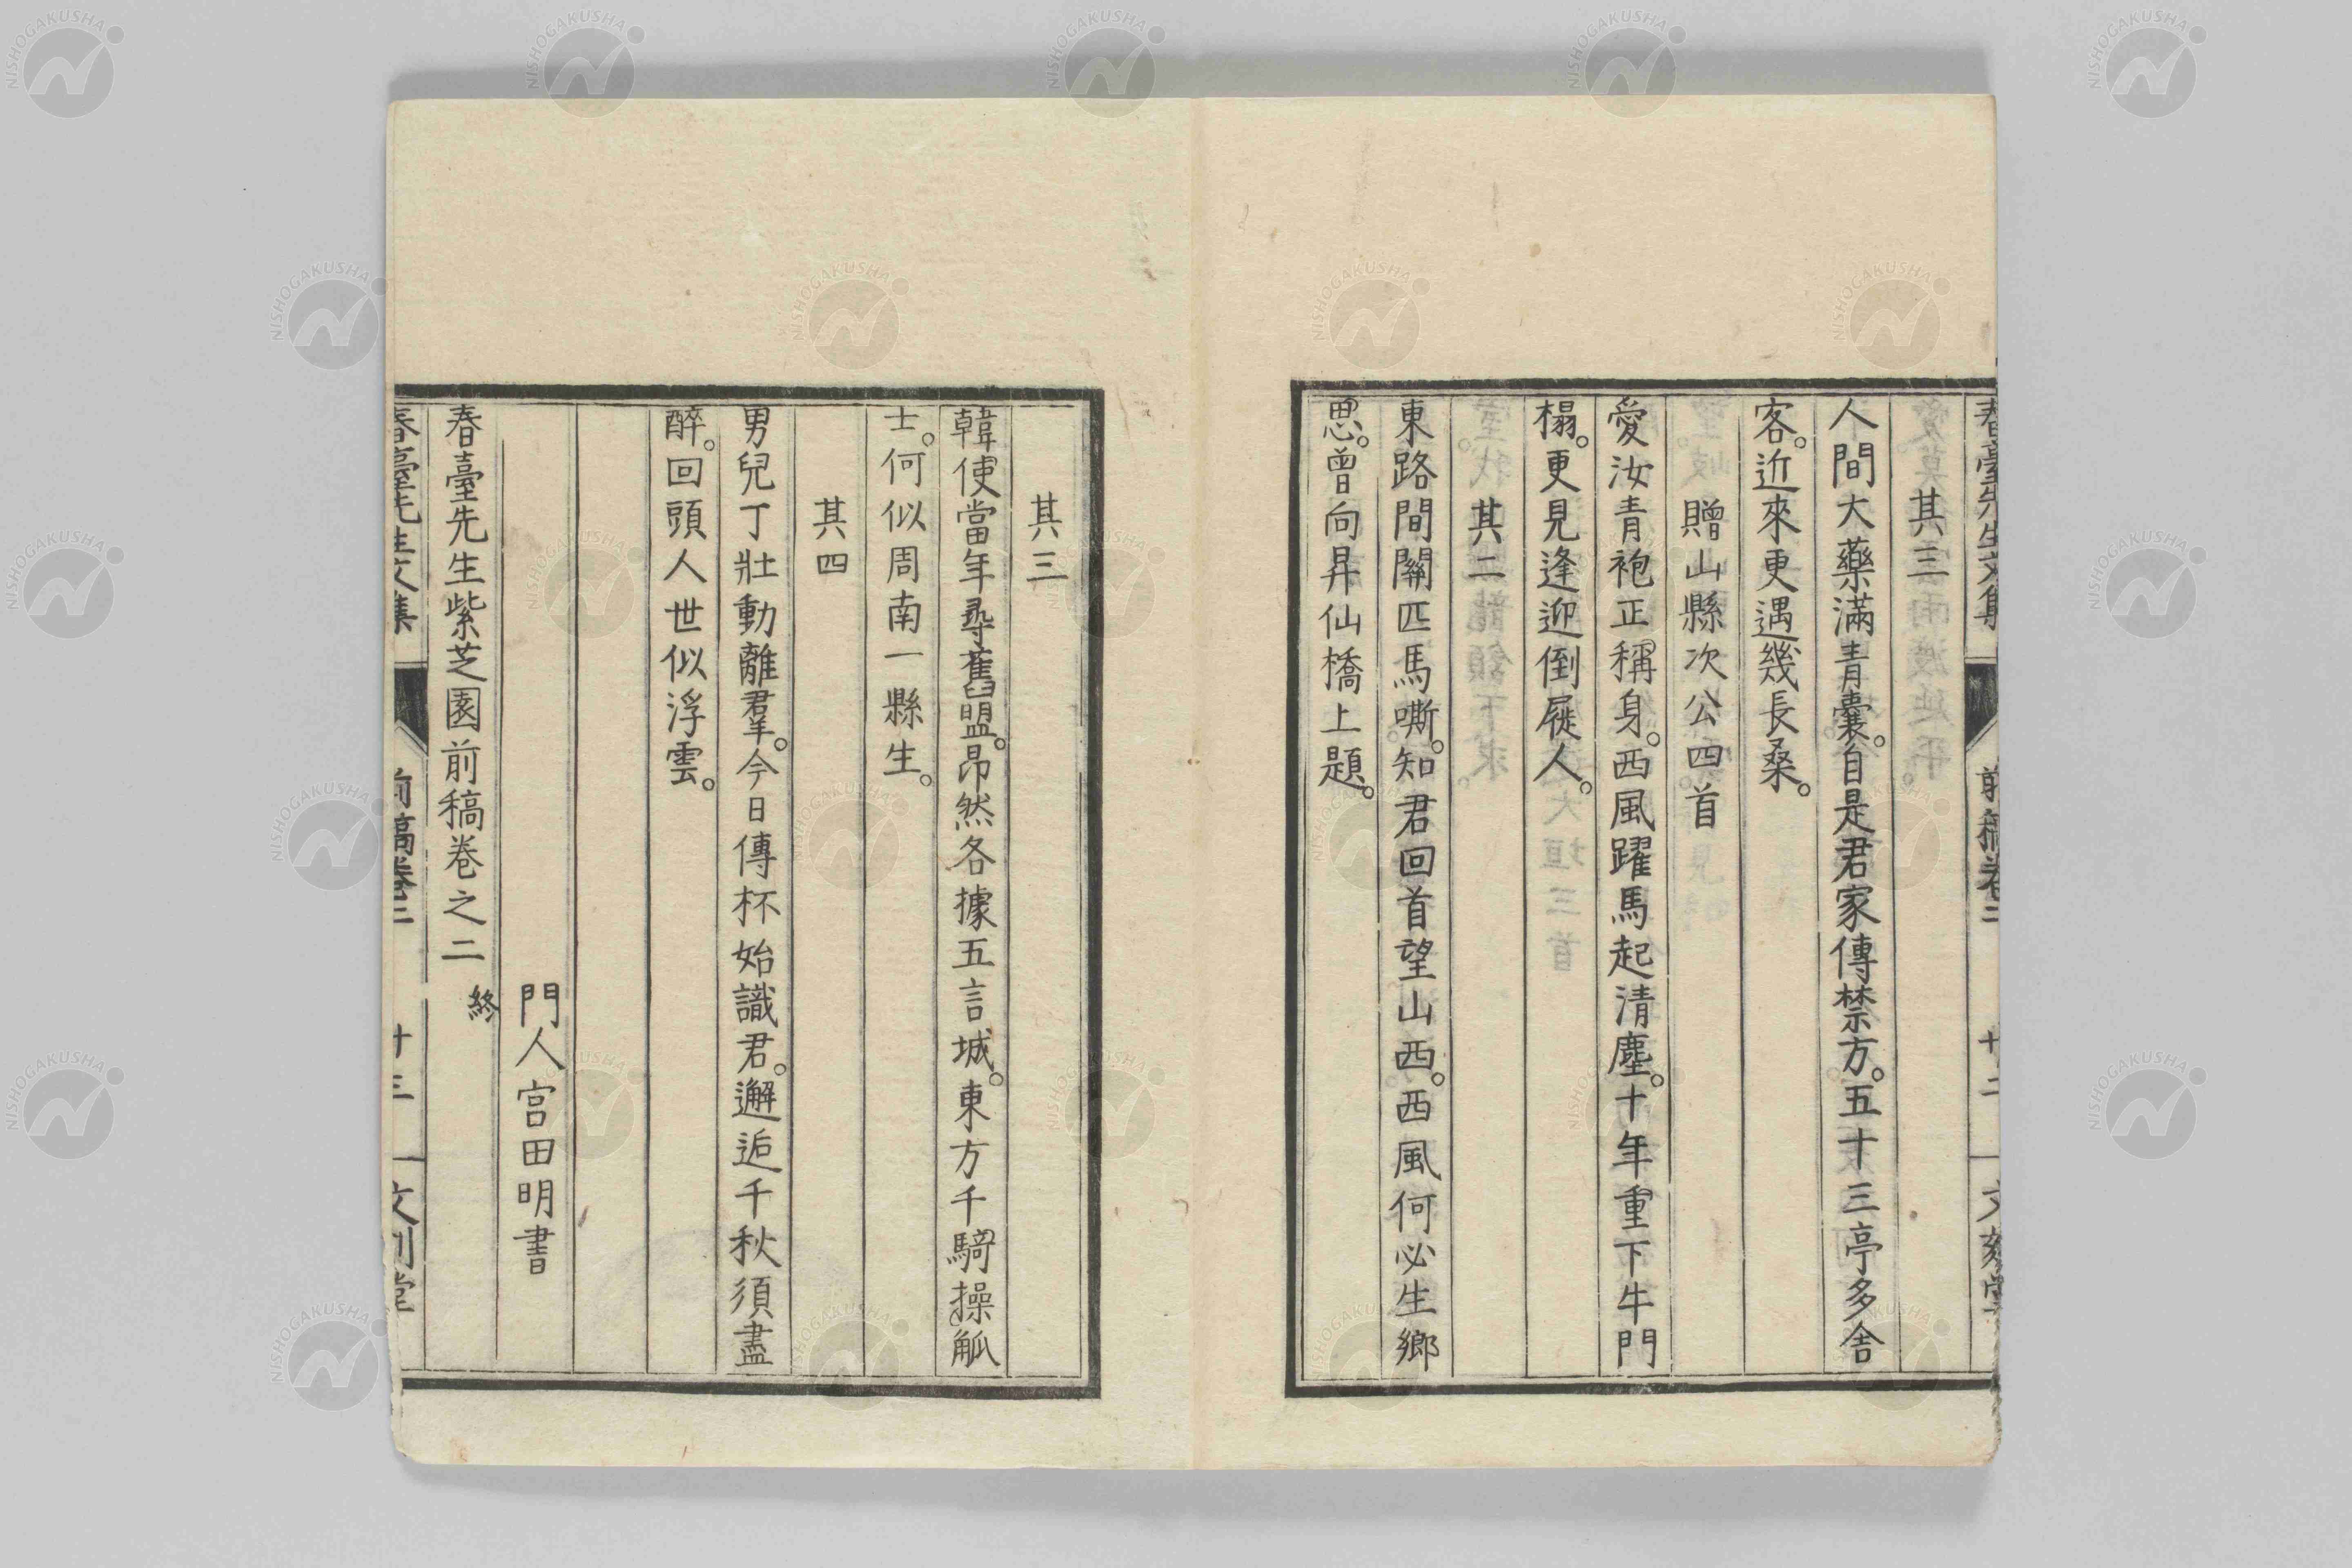 其三
人間大藥滿青囊。自是君家傳禁方。五十三亭多舍
客。近來更遇幾長桑。
贈山縣次公四首
愛汝青袍正稱身。西風躍馬起清塵。十年重下牛門
榻。更見逢迎倒屣人。
其二
東路間關匹馬嘶。知君回首望山西。西風何必生鄉
思。曾向昇仙橋上題。
其三
韓使當年尋舊盟。昂然各據五言城。東方千騎操觚
士。何似周南一縣生。
其四
男兒丁壯動離羣。今日傳杯始識君。邂逅千秋須盡
醉。回頭人世似浮雲。
門人宮田明書
春臺先生紫芝園前稿卷之二 終
春臺先生文集 前稿卷二 十三
NISHOGAKUSHA